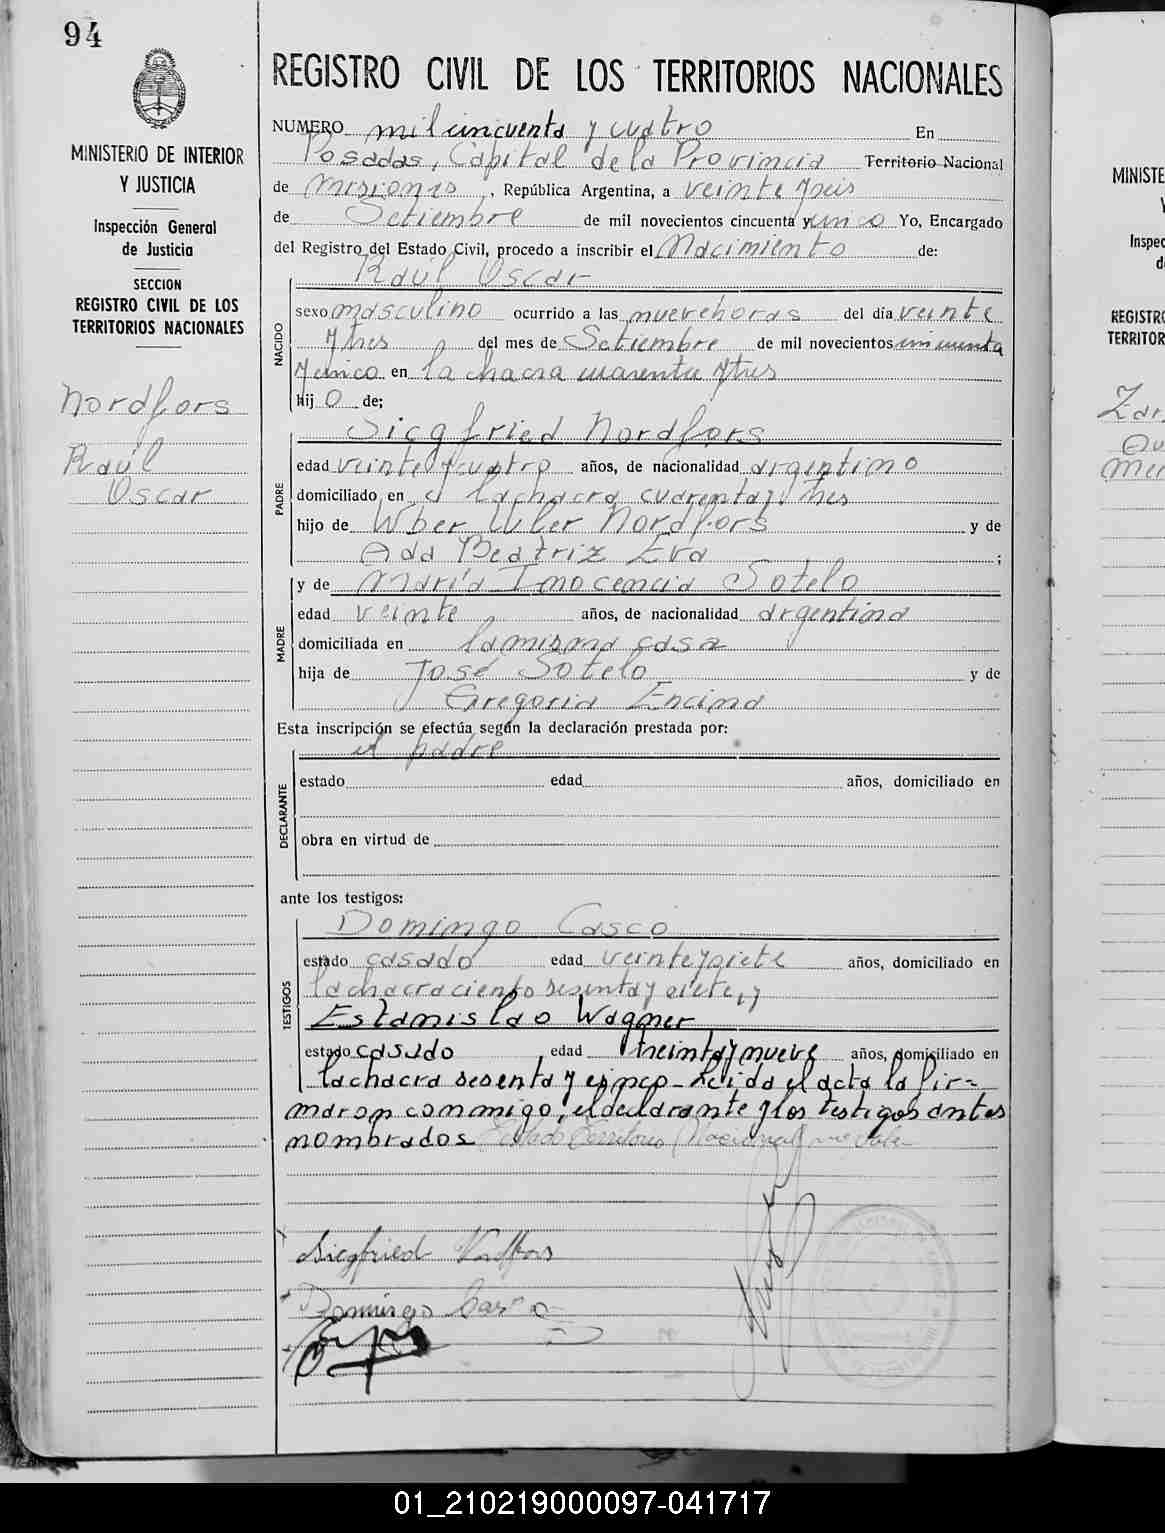 94
MINISTERIO DE INTERIOR
Y JUSTICIA
Inspección General
de Justicia
SECCION
REGISTRO CIVIL DE LOS
TERRITORIOS NACIONALES
Nordfors
Raúl
Oscar
REGISTRO CIVIL DE LOS TERRITORIOS NACIONALES
NUMERO mil cincuenta y cuatro En
Posadas, Capital de la Provincia Territorio Nacional
de Misiones, República Argentina, a veinte y seis
de Setiembre de mil novecientos cincuenta y cinco Yo, Encargado
del Registro del Estado Civil, procedo a inscribir el Nacimiento de:
NACIDO
Raúl Oscar
sexo masculino ocurrido a las nueve horas del día veinte
y tres del mes de Setiembre de mil novecientos cincuenta
y cinco en la chacra cuarenta y tres
hij o de;
PADRE
Siegfried Nordfors
edad veinte y cuatro años, de nacionalidad argentino
domiciliado en la chacra cuarenta y tres
hijo de Nordfors y de
Ada Beatriz Eva ;
MADRE
y de María Inocencia Sotelo
edad veinte años, de nacionalidad argentina
domiciliada en la misma casa
hija de José Sotelo y de
Gregoria Encina
Esta inscripción se efectúa según la declaración prestada por:
el padre
DECLARANTE
estado edad años, domiciliado en
obra en virtud de
ante los testigos:
TESTIGOS
Domingo Casco
estado casado edad veinte y siete años, domiciliado en
la chacra ciento sesenta y siete, y
Estanislao Wagner
estado casado edad treinta y nueve años, domiciliado en
la chacra sesenta y cinco - Leida el acta la fir=
maron conmigo, el declarante y los testigos antes
nombrados Territorio Nacional no vale
Siegfried Nordfors
Domingo Casco
MINISTE
Y
Inspec
d
REGISTRO
TERRITOR
01_210219000097-041717